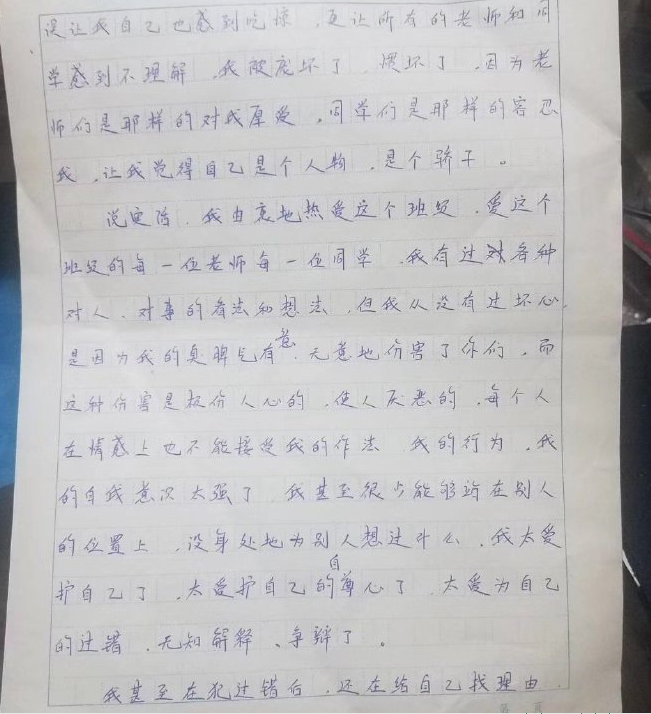 误让我自己也感到吃惊,更让所有的老师和同
学感到不理解,我被宠坏了,惯坏了,因为老
师们是那样的对我厚爱,同学们是那样的容忍
我,让我觉得自己是个人物,是个骄子。
说实话,我由衷地热爱这个班级,爱这个
班级的每一位老师每一位同学,我有过对各种
对人、对事的看法和想法,但我从没有过坏心,
是因为我的臭脾气有意、无意地伤害了你们,而
这种伤害是极伤人心的,使人厌恶的,每个人
在情感上也不能接受我的作法,我的行为,我
的自我意识太强了,我甚至很少能够站在别人
的位置上,设身处地为别人想过什么,我太爱
护自己了,太爱护自己的自尊心了,太爱为自己
的过错,无知解释、争辩了。
我甚至在犯过错后,还在给自己找理由